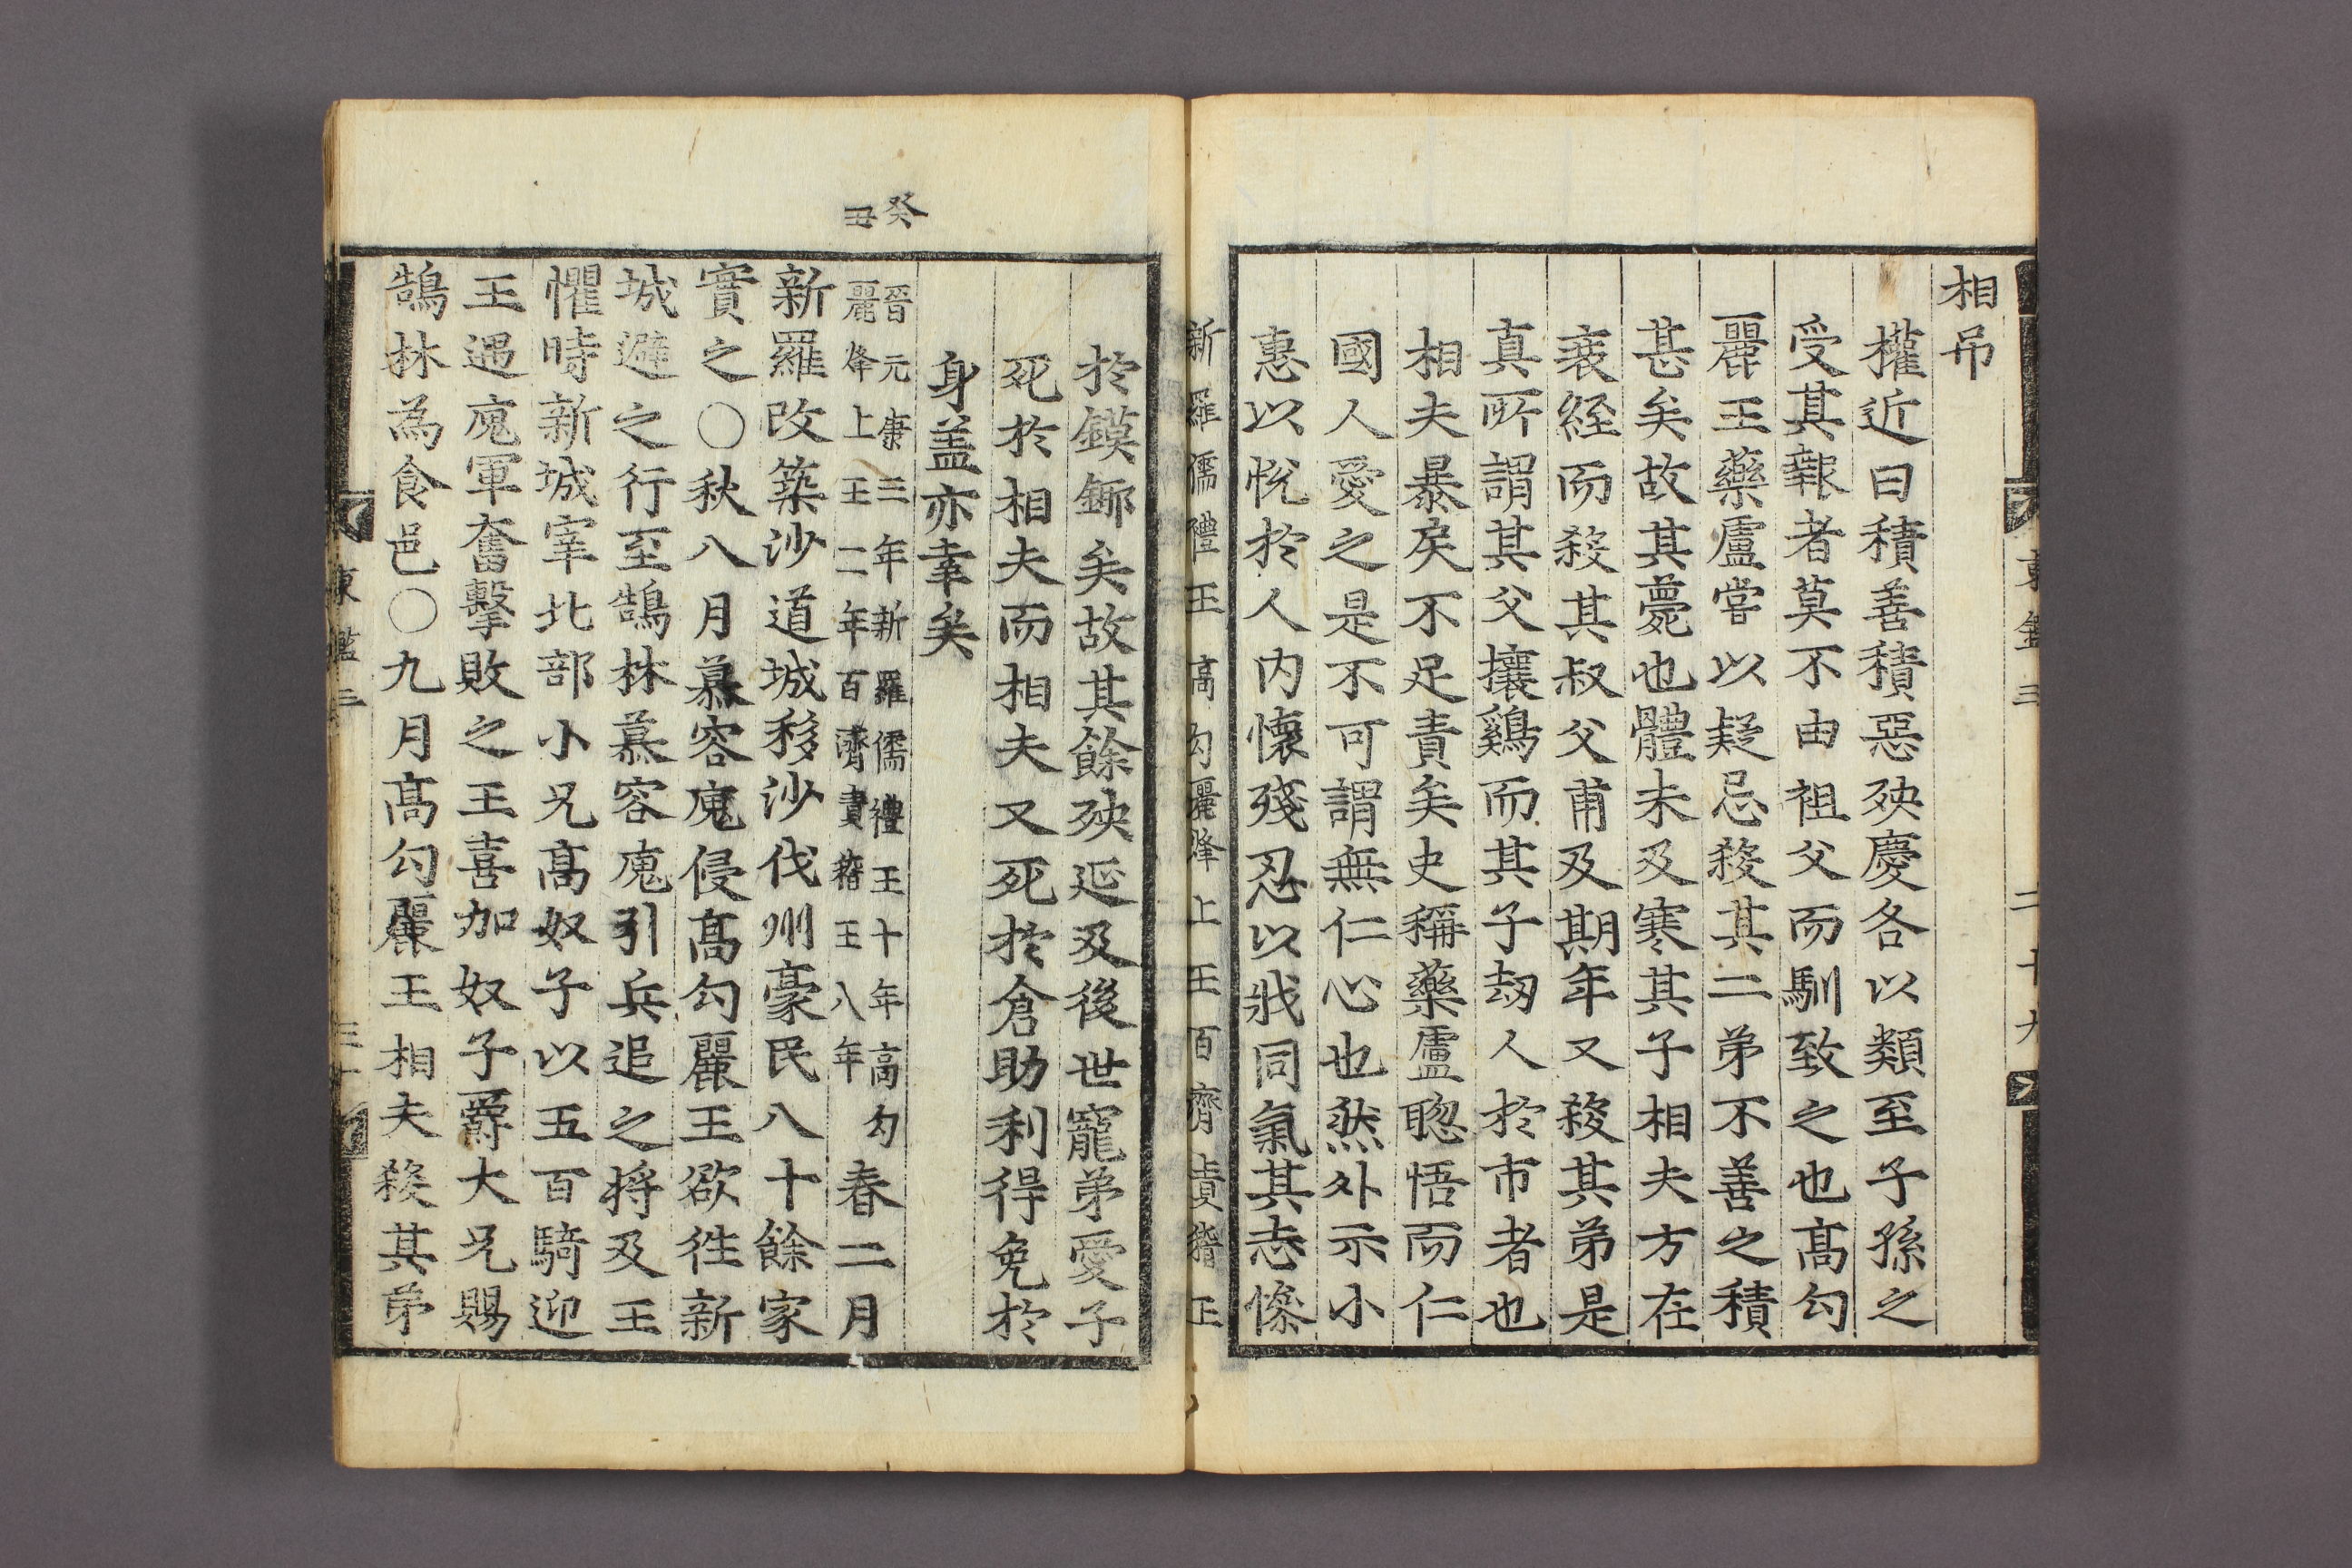 相吊
權近曰積善積惡殃慶各以類至子孫之
受其報者莫不由祖父而馴致之也高勾
麗王藥盧嘗以疑忌殺其二弟不善之積
甚矣故其薨也體未及寒其子相夫方在
衰絰而殺其叔父甫及期年又殺其弟是
真所謂其父攘鷄而其子刼人於市者也
相夫暴戾不足責矣史稱藥盧聰悟而仁
國人愛之是不可謂無仁心也然外示小
惠以悅於人内懷殘忍以戕同氣其志慘
新羅儒禮王 高勾麗烽上王 百濟責稽王
於鏌鋣矣故其餘殃延及後世寵弟愛子
死於相夫而相夫又死於倉助利得免於
身盖亦幸矣
癸丑
晉元康三年新羅儒禮王十年高勾
麗烽上王二年百濟責稽王八年
春二月
新羅改築沙道城移沙伐州豪民八十餘家
實之〇秋八月慕容廆侵高勾麗王欲徃新
城避之行至鵠林慕容廆引兵追之將及王
懼時新城宰北部小兄高奴子以五百騎迎
王遇廆軍奮擊敗之王喜加奴子爵大兄賜
鵠林為食邑〇九月高勾麗王相夫殺其弟
東鑑三
三十